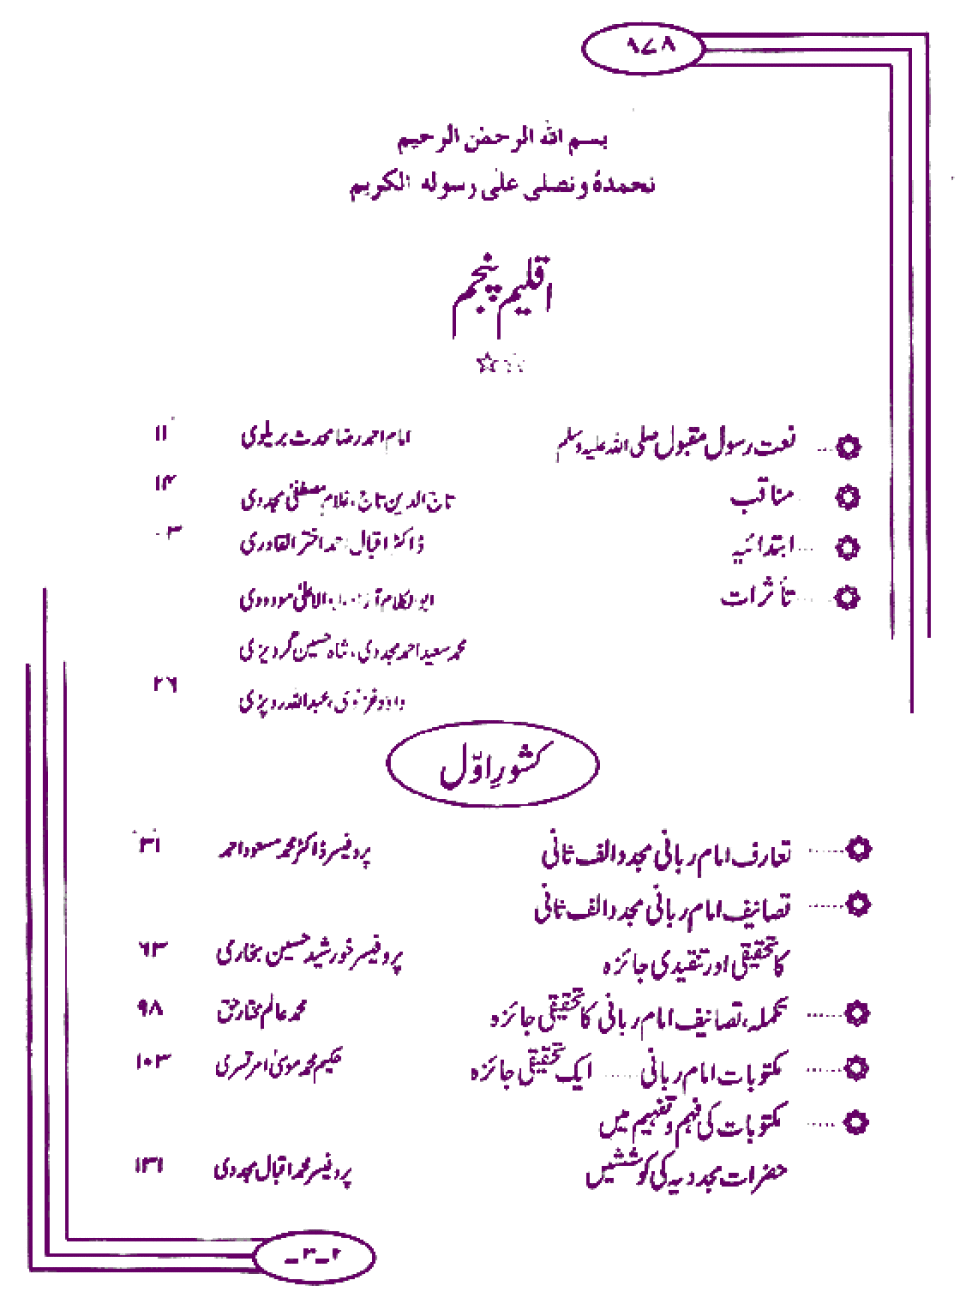 ۹۸۷
بسم اللہ الرحمٰن الرحیم
نحمدہٗ ونصلی علیٰ رسولہ الکریم
اقلیم پنجم
نعت رسول مقبول صلی اللہ علیہ وسلم امام احمد رضا محدث بریلوی ۱۱
مناقب تاج الدین تاج، غلام مصطفیٰ مجددی ۱۴
... ابتدائیہ ڈاکٹر اقبال احمد اختر القادری ۰۳
تأثرات ابوالکلام آزاد، ابوالاعلیٰ مودودی
محمد سعید احمد مجددی، شاہ حسین گردیزی
داؤد غزنوی، عبداللہ روپڑی ۲۶
کشورِ اوّل
..... تعارف امام ربانی مجدد الف ثانی پروفیسر ڈاکٹر محمد مسعود احمد ۳۱
..... تصانیف امام ربانی مجدد الف ثانی
کا تحقیقی اور تنقیدی جائزہ پروفیسر خورشید حسین بخاری ۶۳
..... تکملہ، تصانیف امام ربانی کا تحقیقی جائزہ محمد عالم مختار حق ۹۸
..... مکتوبات امام ربانی ..... ایک تحقیقی جائزہ حکیم محمد موسیٰ امرتسری ۱۰۳
..... مکتوبات کی فہم و تفہیم میں
حضرات مجددیہ کی کوششیں پروفیسر محمد اقبال مجددی ۱۳۱
۲ـ۳ـ